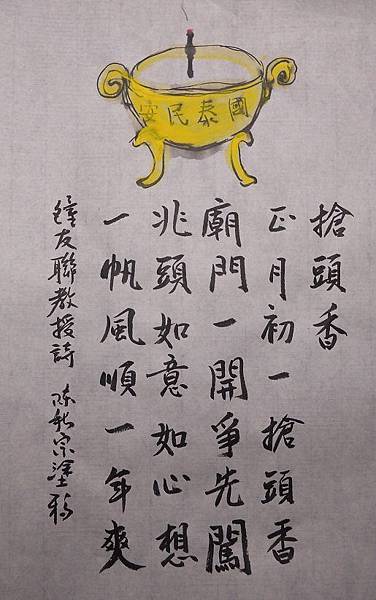 國泰民安
搶頭香
正月初一搶頭香
廟門一開爭先闖
兆頭如意如心想
一帆風順一年爽
鐘友聯教授詩 陳秋宗塗稿